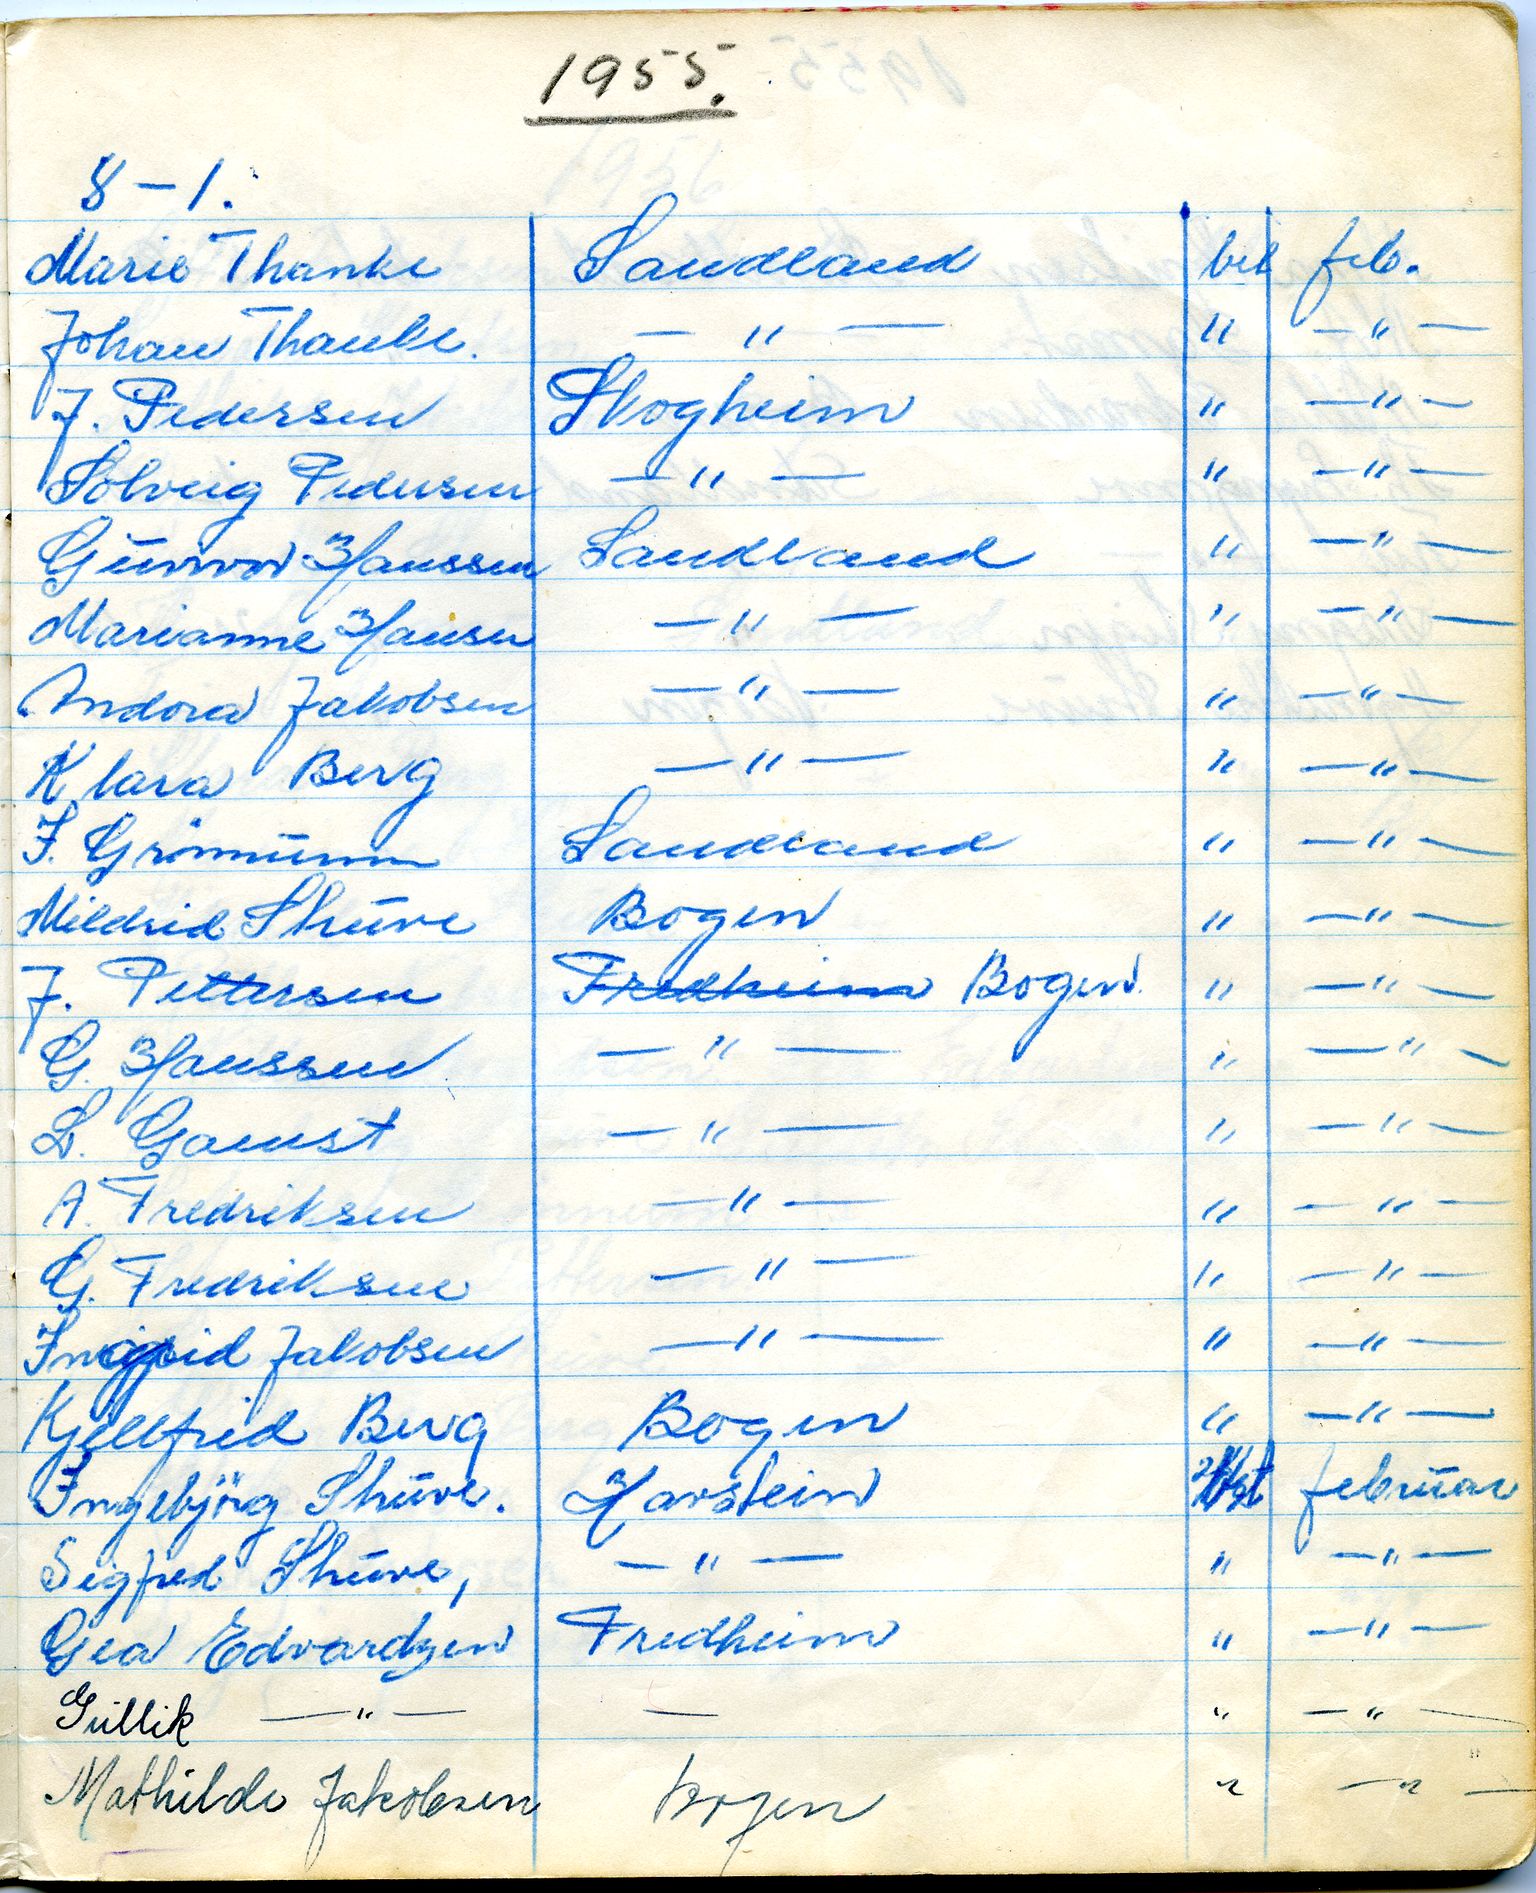 1955.
8 – 1.
Marie Thanke Sandland bet feb.
Johan Thanke. — " — " — " —
J. Pedersen Skogheim " — " —
Solveig Pedersen — " — " — " —
Gunvor Hanssen Sandland " — " —
Marianne Hansen — " — " — " —
Andora Jakobsen — " — " — " —
Klara Berg — " — " — " —
F. Grönnumm Sandland " — " —
Mildrid Skuve Bogen " — " —
J. Pettersen Fredheim Bogen " — " —
G. Hanssen — " — " — " —
L. Gamst — " — " — " —
A. Fredriksen — " — " — " —
G. Fredriksen — " — " — " —
Jakobsen — " — " — " —
Kjellfrid Berg Bogen " — " —
Ingebjörg Skuve. Harstein februar
Sigfred Skuve, — " — " — " —
Gea Edvardzen Fredheim " — " —
Gullik — " — — " — " —
Mathilde Jakobsen Bogen " — " —